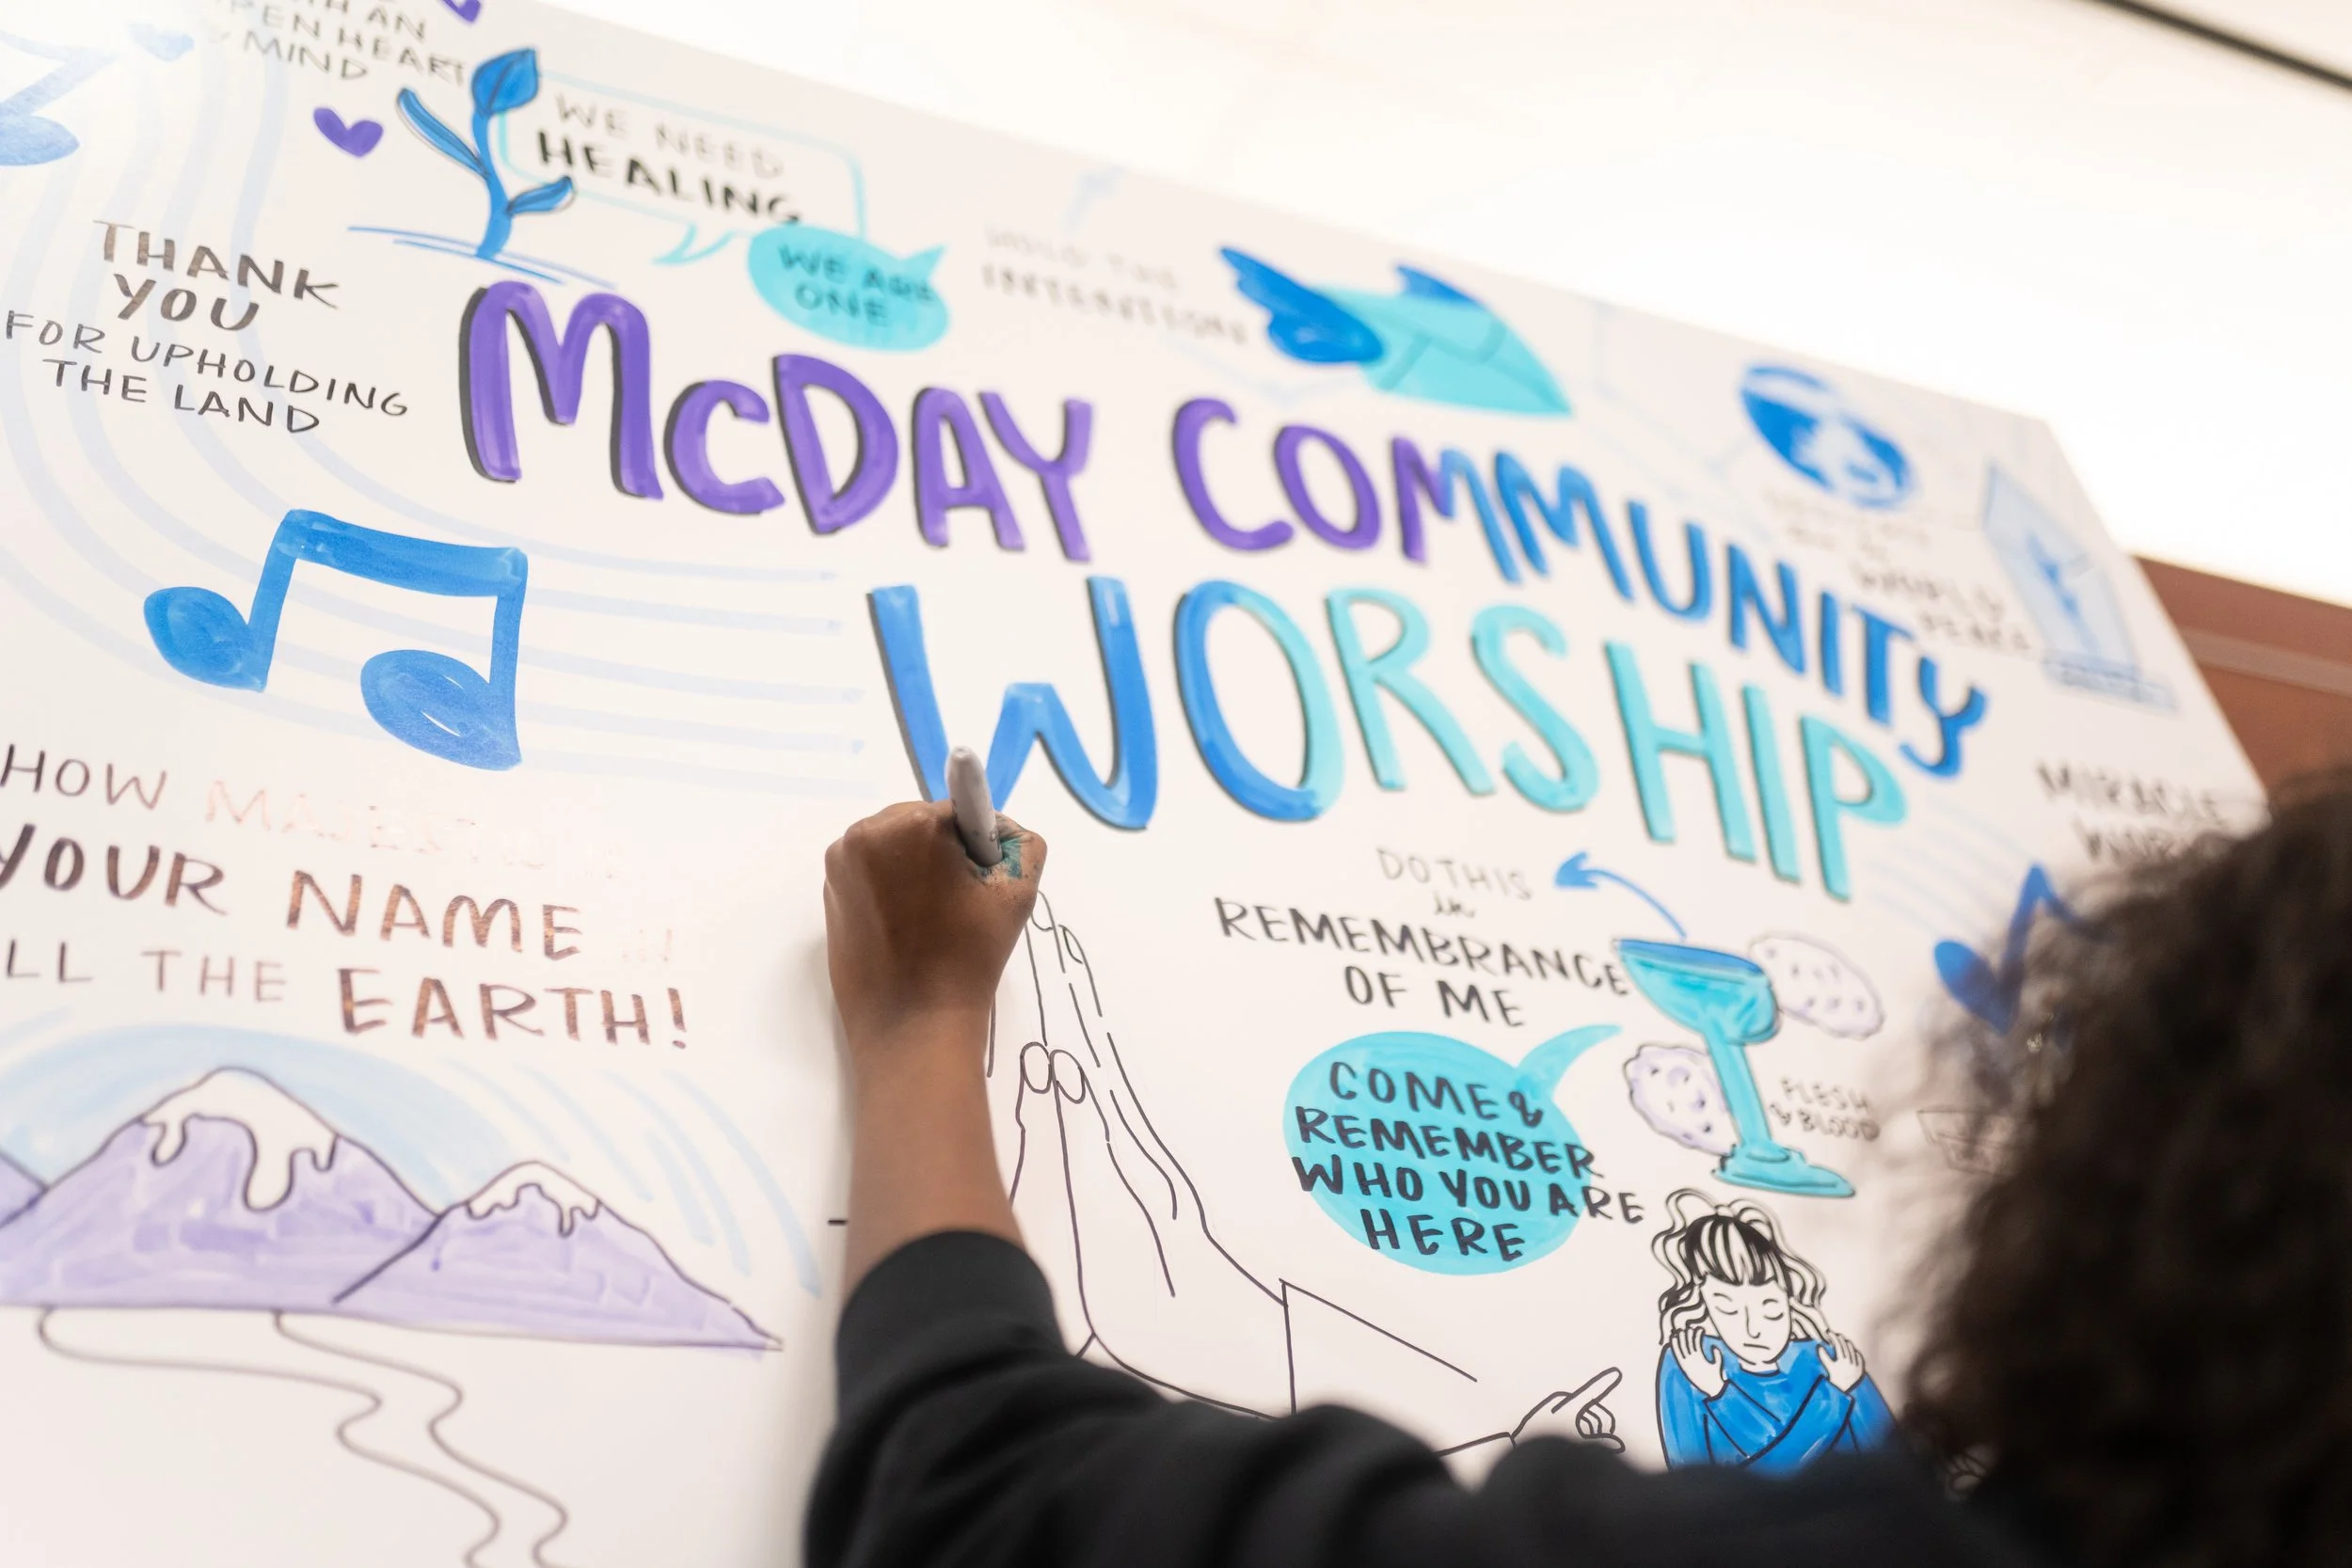 AN
OPEN HEART
& MIND
WE NEED
HEALING
WE ARE
ONE
HOLD THE
INTENTION
THANK
YOU
FOR UPHOLDING
THE LAND
McDAY COMMUNITY
WORSHIP
WORLD
PEACE
MIRACLE
HOW MAJESTIC IS
YOUR NAME IN
ALL THE EARTH!
DO THIS
in
REMEMBRANCE
OF ME
COME &
REMEMBER
WHO YOU ARE
HERE
FLESH
& BLOOD